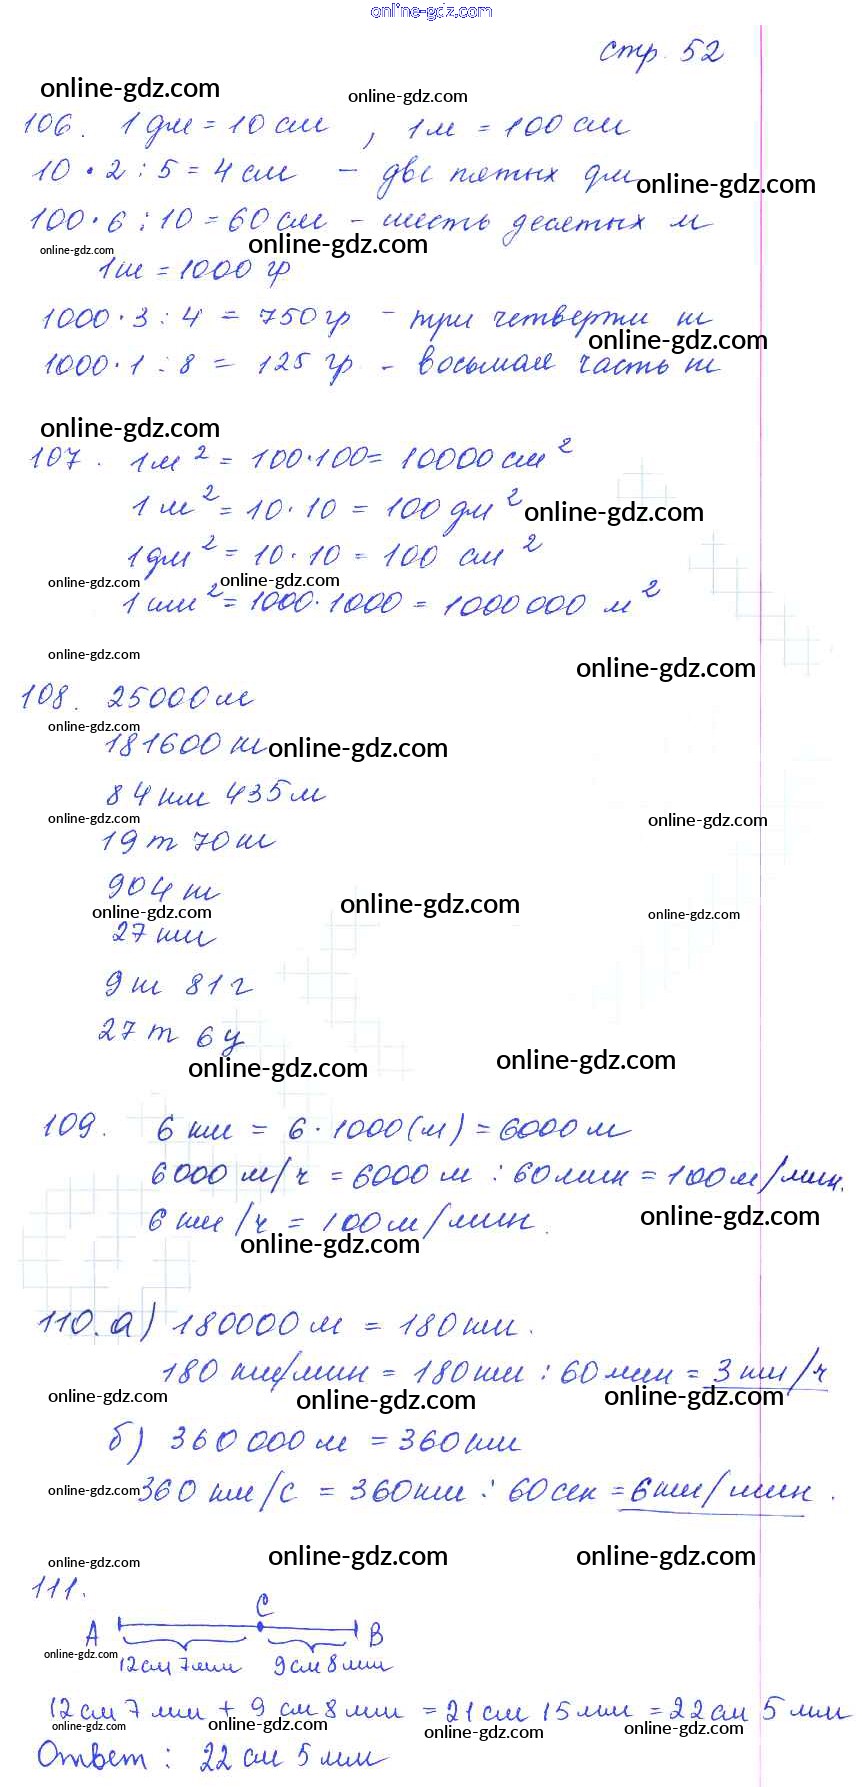 online-gdz.com
стр. 52
online-gdz.com
online-gdz.com
106. 1 дм = 10 см , 1 м = 100 см
10 · 2 : 5 = 4 см - две пятых дм
online-gdz.com
100 · 6 : 10 = 60 см - шесть десятых м
online-gdz.com online-gdz.com
1кг = 1000 гр
1000 · 3 : 4 = 750 гр - три четверти кг
online-gdz.com
1000 · 1 : 8 = 125 гр - восьмая часть кг
online-gdz.com
107. 1м² = 100·100 = 10000 см²
1 м² = 10 · 10 = 100 дм²
online-gdz.com
1дм² = 10 · 10 = 100 см²
online-gdz.com online-gdz.com
1 км² = 1000·1000 = 1000 000 м²
online-gdz.com
online-gdz.com
108. 25000м
online-gdz.com
181600 кг
online-gdz.com
84 км 435 м
online-gdz.com online-gdz.com
19 т 70 кг
904 кг
online-gdz.com online-gdz.com online-gdz.com
27 км
9 кг 81 г
27 т 6 ц
online-gdz.com online-gdz.com
109. 6 км = 6 · 1000 (м) = 6000 м
6000 м/ч = 6000 м : 60 мин = 100 м/мин.
6 км/ч = 100 м/мин.
online-gdz.com online-gdz.com
110. а) 180000 м = 180 км.
180 км/мин = 180 км : 60 мин = 3 км/ч
online-gdz.com online-gdz.com online-gdz.com
б) 360 000 м = 360 км
online-gdz.com
360 км/с = 360 км : 60 сек = 6 км/мин.
online-gdz.com online-gdz.com online-gdz.com
111.
C
A B
online-gdz.com
12 см 7 мм 9 см 8 мм
12 см 7 мм + 9 см 8 мм = 21 см 15 мм = 22 см 5 мм
online-gdz.com online-gdz.com online-gdz.com online-gdz.com
Ответ: 22 см 5 мм